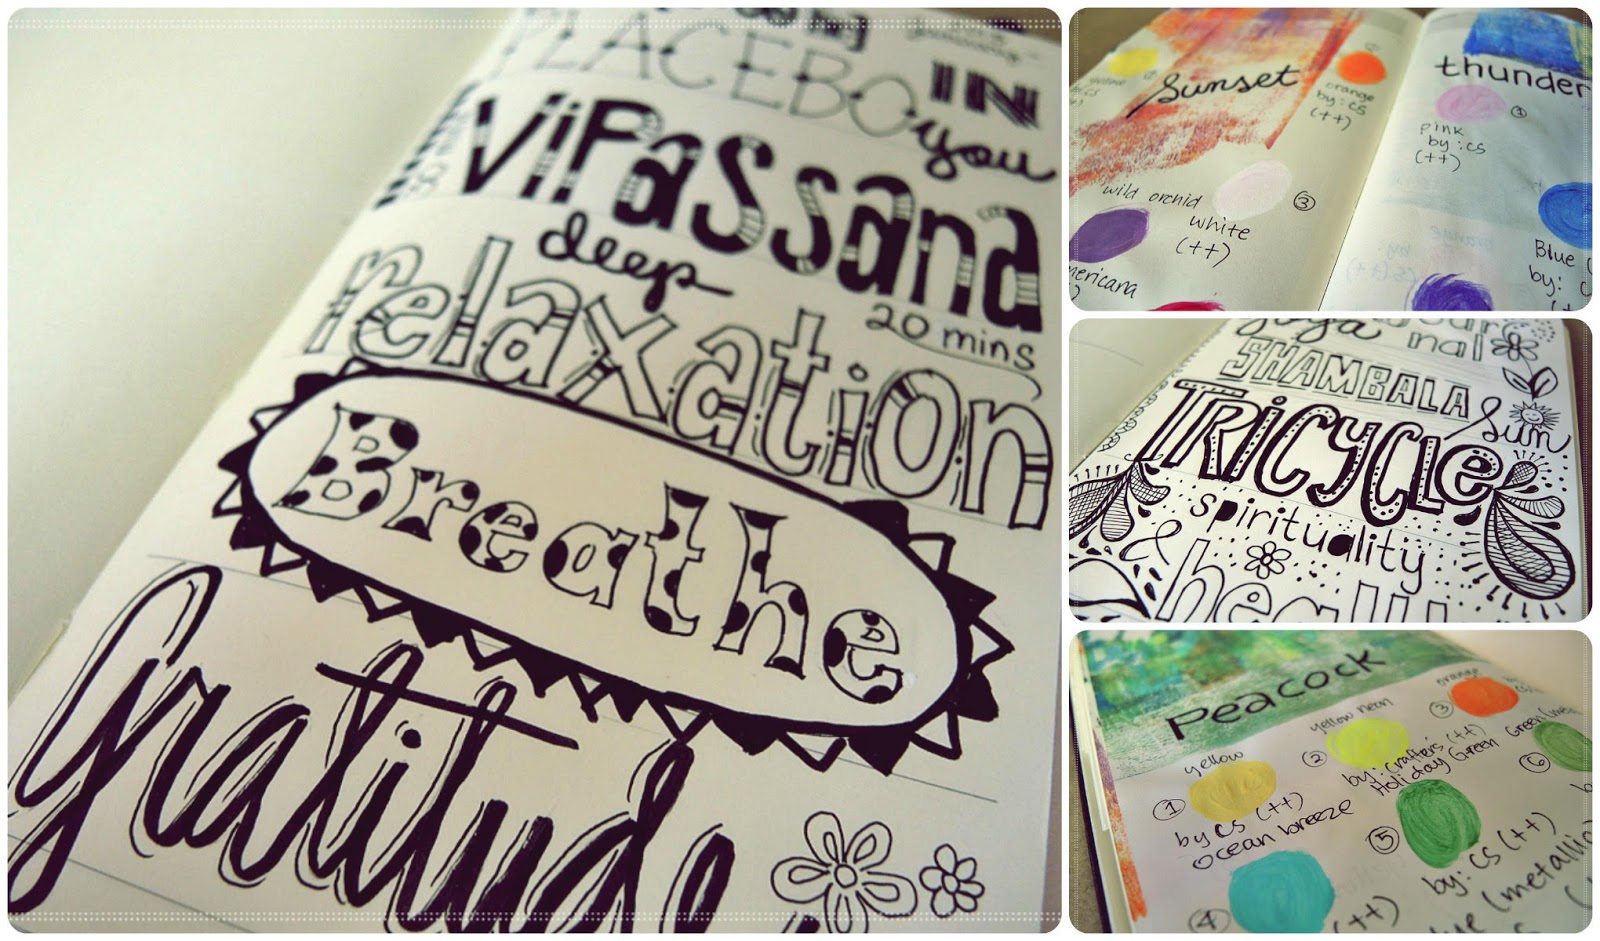 PLACEBO
IN
you
ViPassana
deep
relaxation
20 mins
Breathe
Gratitude
Sunset
orange
by: cs
(++)
wild orchid
white
(++)
③
thunder
①
pink
by: cs
(++)
Blue
by:
nal
SHAMBALA
TRiCYCLe
Sun
spirituality
&
Peacock
yellow
①
by cs (++)
ocean breeze
yellow neon
②
by: crafter's (++)
Holiday Green
orange
③
④
(++)
⑤
by: cs (++)
Green (me
⑥
(metallic)